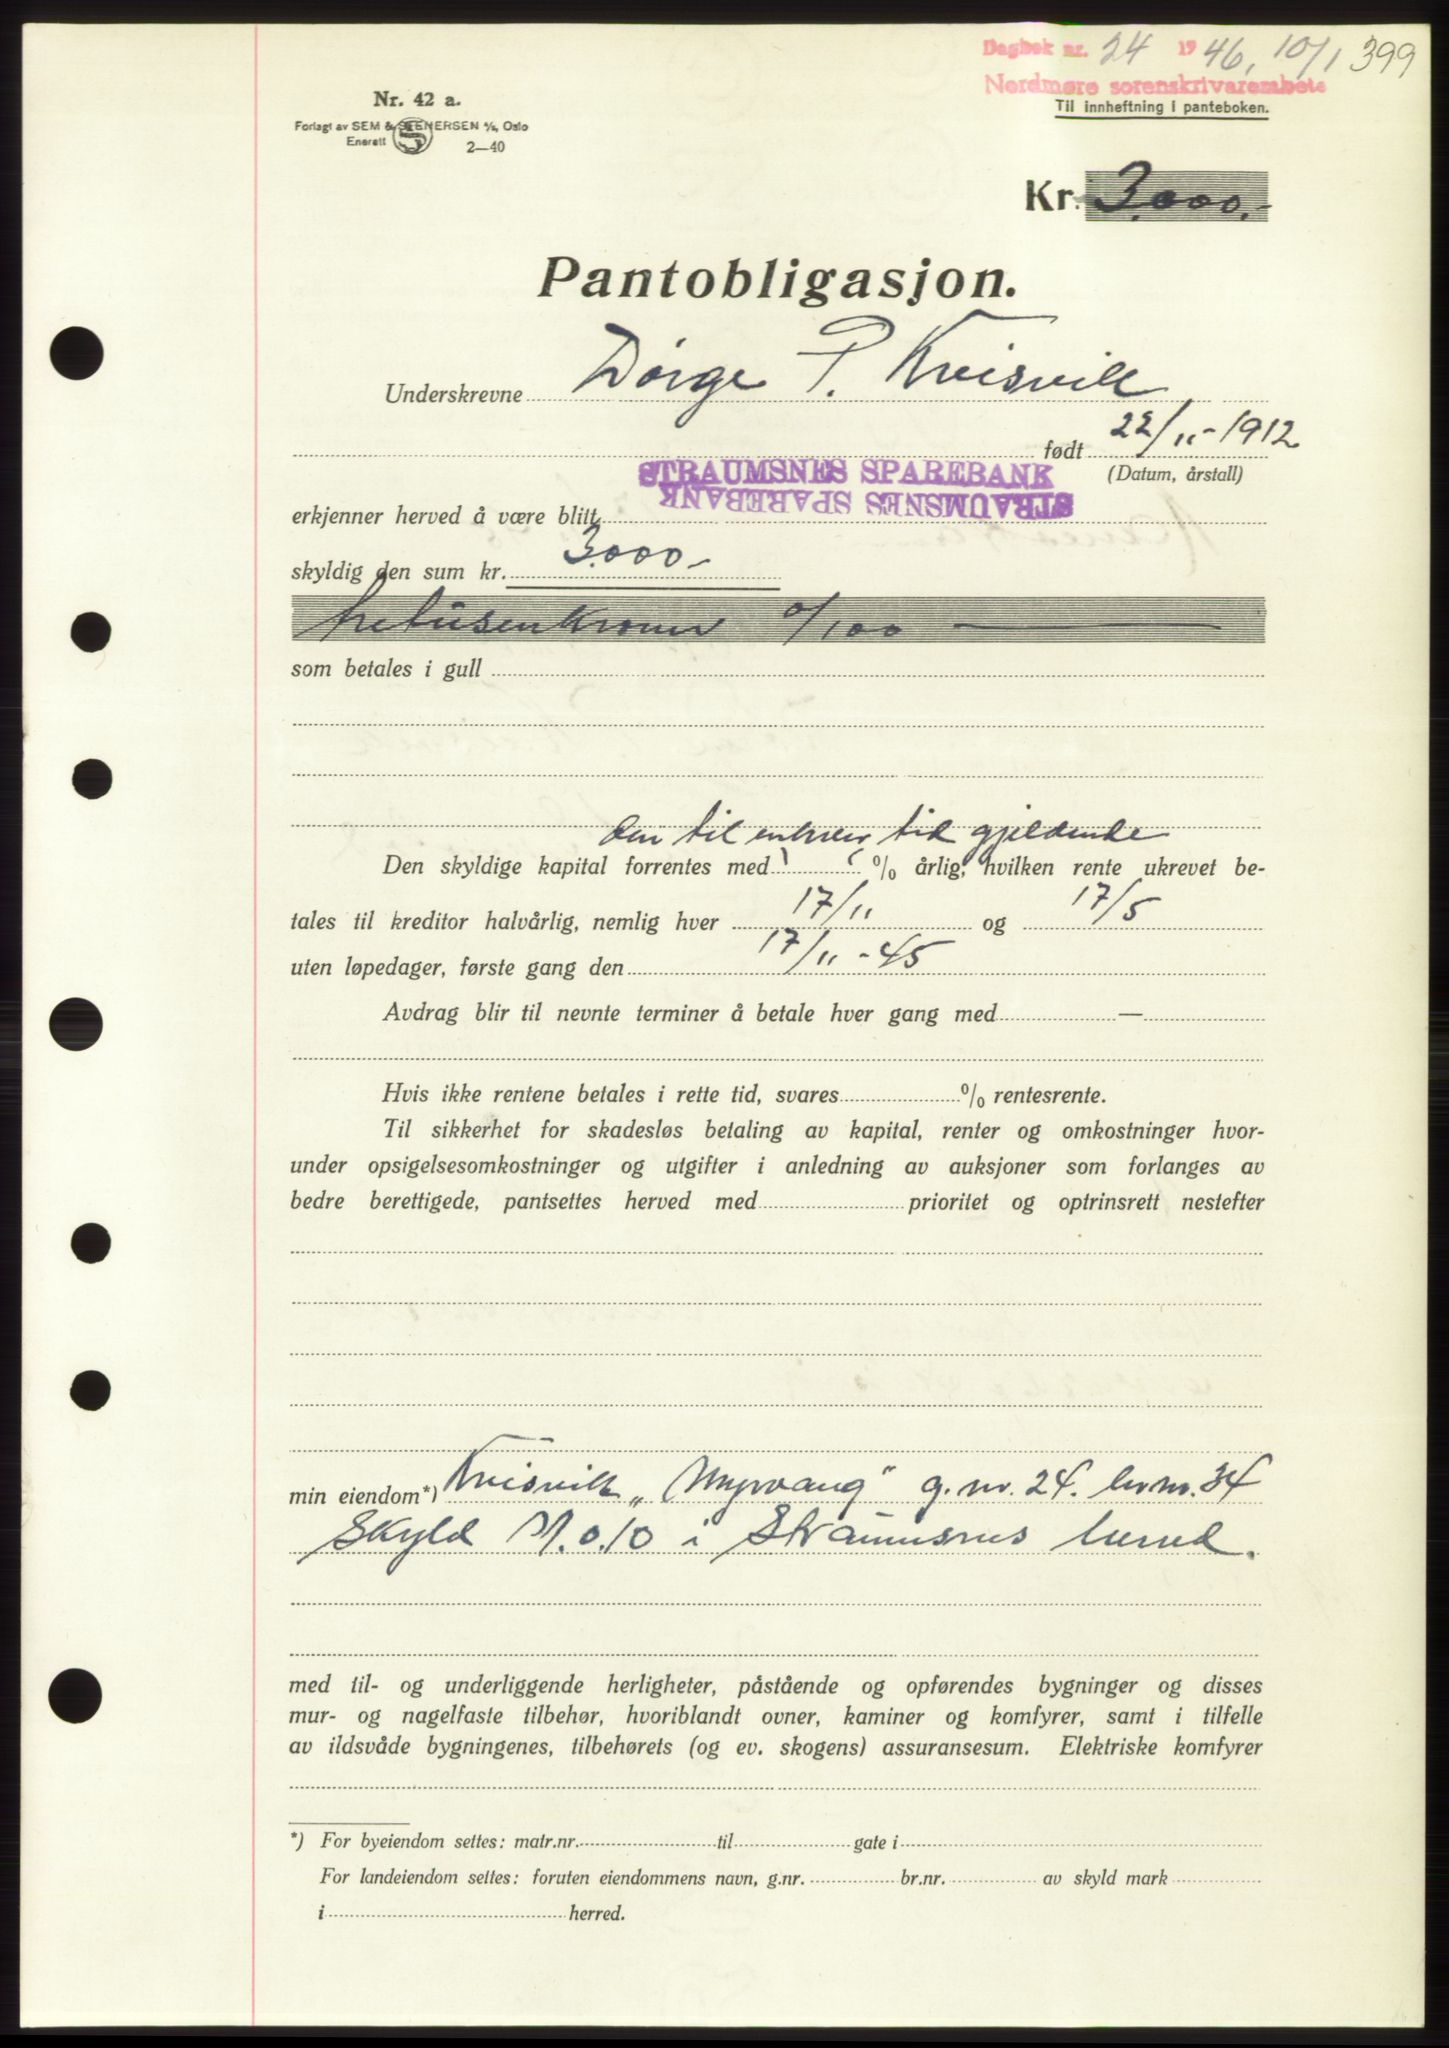 Dagbok nr. 24 1946, 10/1 399
Nordmøre sorenskrivarembete
Til innheftning i panteboken.
Nr. 42 a.
Forlagt av SEM & STENERSEN A/S, Oslo
Enerett 2—40
Kr. 3.000.-
Pantobligasjon.
Underskrevne Dørge P. Kvisvik
født 22/11-1912
(Datum, årstall)
STRAUMSNES SPAREBANK
STRAUMSNES SPAREBANK
erkjenner herved å være blitt
skyldig den sum kr. 3.000.-
tretusenkroner 0/100
som betales i gull
den til enhver tid gjeldende
Den skyldige kapital forrentes med % årlig, hvilken rente ukrevet be-
tales til kreditor halvårlig, nemlig hver 17/11 og 17/5
uten løpedager, første gang den 17/11-45
Avdrag blir til nevnte terminer å betale hver gang med —
Hvis ikke rentene betales i rette tid, svares % rentesrente.
Til sikkerhet for skadesløs betaling av kapital, renter og omkostninger hvor-
under opsigelsesomkostninger og utgifter i anledning av auksjoner som forlanges av
bedre berettigede, pantsettes herved med prioritet og optrinsrett nestefter
min eiendom*) Kvisvik „Myrvang" g.nr. 24. br.nr. 34
Skyld M. 0.10 i Straumsnes herred.
med til- og underliggende herligheter, påstående og opførendes bygninger og disses
mur- og nagelfaste tilbehør, hvoriblandt ovner, kaminer og komfyrer, samt i tilfelle
av ildsvåde bygningenes, tilbehørets (og ev. skogens) assuransesum. Elektriske komfyrer
*) For byeiendom settes: matr.nr. til gate i
For landeiendom settes: foruten eiendommens navn, g.nr. br.nr. av skyld mark
i herred.